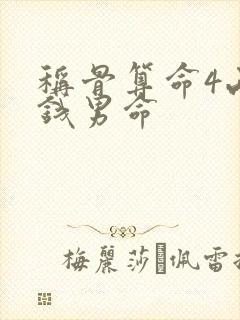 稱骨算命4兩
錢男命
梅麗莎·佩雷